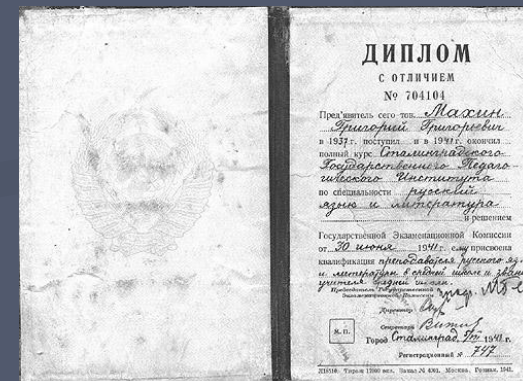 ДИПЛОМ
С ОТЛИЧИЕМ
№ 704104
Пред'явитель сего тов. Махин
Григорий Григорьевич
в 1937 г. поступил и в 1941 г. окончил
полный курс Сталинградского
Государственного Педаго-
гического Института
по специальности русский
язык и литература
и решением
Государственной Экзаменационной Комиссии
от 30 июня 1941 г. ему присвоена
квалификация преподавателя русского яз.
и литературы в средней школе и звание
учителя средней школы.
Председатель Государственной
Экзаменационной Комиссии
Директор
Секретарь
М. П.
Город Сталинград, 1941 г.
Регистрационный № 747
Москва, 1941.